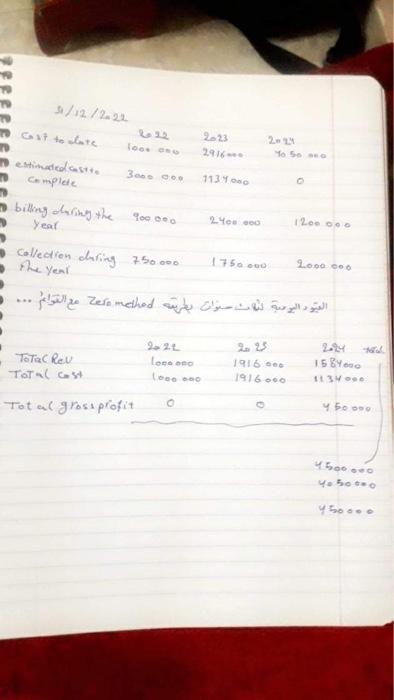 31/12/2022
2022 2023 2024
Cost to date 1000 000 2916 000 4050 000
estimated cost to 3000 000 1134000 0
Complete
billing during the 900 000 2400 000 1200 000
Year
Collection during 750.000 1750.000 2000 000
the year
القيود اليومية لثلاث سنوات بطريقة Zero method مع القوائم ...
2022 2023 2024 total
Total Rev 1000 000 1916 000 1584000
Total Cost 1000 000 1916 000 1134000
Total gross profit 0 0 450 000
4500 000
4050 000
450000